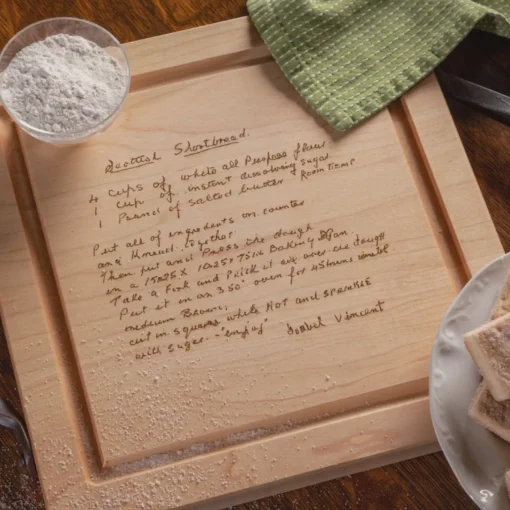 Scottish Shortbread.
4 cups of white all Purpose flour
1 cup of instant dissolving sugar
1 Pound of salted butter Room Temp
Put all of ingredients on counter
and Knead together
Then put and Press the dough
in a Baking Pan
Take a Fork and Prick it all over the dough
Put it on an 350° oven for 45 mins until
medium Brown,
cut in squares while HOT and SPRINKLE
with Sugar. "enjoy" Isobel Vincent